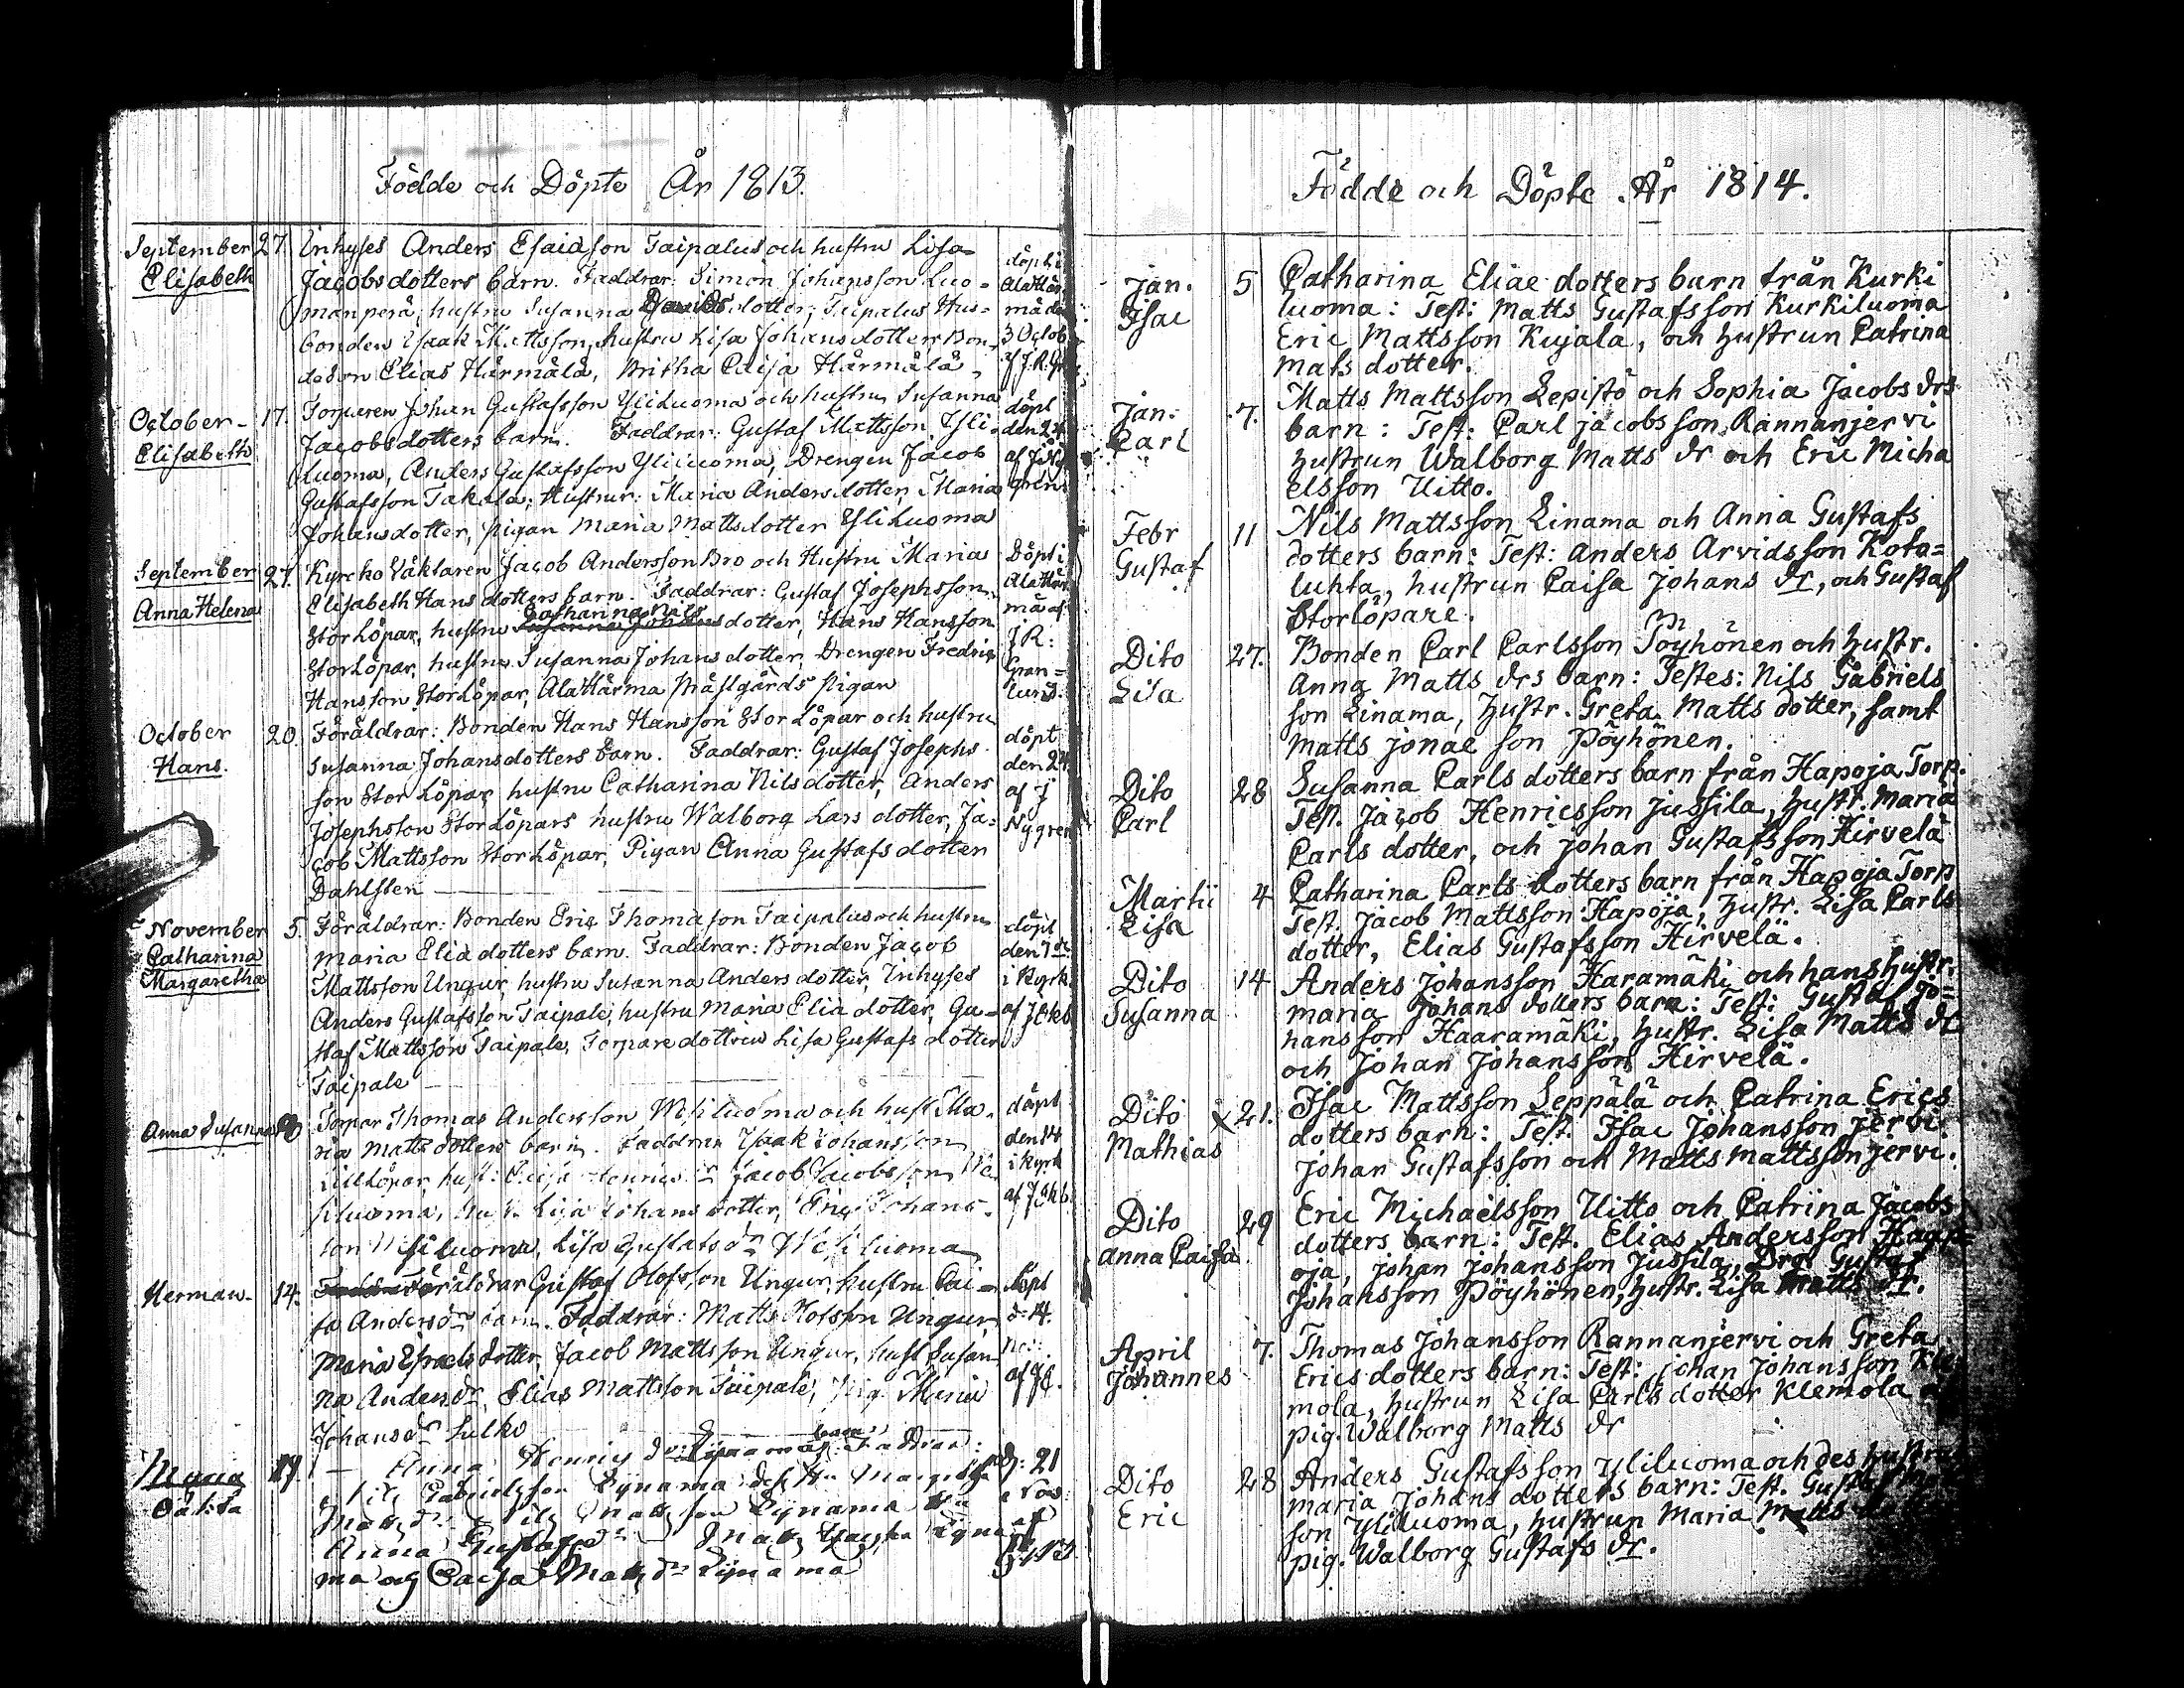 Födde och Döpte År 1813.
September 27. Inhyses Anders Esaiason Taipalus och hustru Lisa
Elisabeth Jacobsdotters barn. Faddrar: Simon Johansson Luo- döpt i Alahär-
manperä, hustru Susanna Davidsdotter, Taipalus Hus- mä den
bonden Isaak Mattsson, hustru Lisa Johansdotter Bon- 3 Octob.
deson Elias Härmälä, Britha Caisa Härmälä
October 17. Torparen Johan Gustafsson Yliluoma och hustru Susanna döpt
Elisabeth Jacobsdotters barn. Faddrar: Gustaf Mattsson Yli- den 24
luoma, Anders Gustafsson Yliluoma, Drengen Jacob
Gustafsson Takala; Hustrur: Maria Andersdotter, Maria
Johansdotter, pigan Maria Mattsdotter Yliluoma
September 27. Kyrckowäktaren Jacob Andersson Bro och Hustru Maria Döpt i
Anna Helena Elisabeth Hansdotters barn. Faddrar: Gustaf Josephsson Alahär-
StorLöpar, hustru Catharina Nils dotter, Hans Hansson mä af
StorLöpar, hustru Susanna Johansdotter, Drengen Fredric J.R:
Hansson StorLöpar, Alahärma Prästgårds Pigan Gran=lund.
October 20. Föräldrar: Bonden Hans Hansson StorLöpar och hustru
Hans. Susanna Johansdotters barn. Faddrar: Gustaf Josephs- döpt
son StorLöpar, hustru Catharina Nilsdotter, Anders den 24.
Josephsson StorLöpars hustru Walborg Lars dotter, Ja- af J
cob Mattsson StorLöpar, Pigan Anna Gustafsdotter Nygren
Dahlsten
November 5. Föräldrar: Bonden Eric Thomason Taipalus och hustru döpt
Catharina Maria Elia dotters barn. Faddrar: Bonden Jacob den 7de
Margaretha Mattsson Ungur, hustru Susanna Andersdotter, Inhyses i kyrk.
Anders Gustafsson Taipale, hustru Maria Elia dotter, Gu-
staf Mattsson Taipale, Torparedottren Lisa Gustafs dotter
Taipale
Anna Susanna Torpar Thomas Andersson Wesiluoma och hust. Ma- döpt
ria Matts dotters barn. Faddrar Isaak Johansson den 14
LillLöpar, hust: Jacob Jacobsson We- i kyrk
siluoma, Lisa Johansdotter, Eric Johans-
son Wesiluoma, Lisa Gustafs dr Wesiluoma
Herman. 14. Föräldrar Gustaf Olofsson Ungur, hustru Cai- döpt
sa Anders dr barn. Faddrar: Matts Olofsson Ungur, d. 14.
Maria Esraels dotter, Jacob Mattsson Ungur, hust Susan
na Anders dr, Elias Mattsson Taipale, Pig. Maria
Johans dr Sulko
Maria 17. Anna Henrics dr Lijnamas barn Faddrar: D: 21
Nils Gabrielsson Lynama
Matts dr Nils Mattsson Lynama
Anna Gustafs dr
ma och Caisa Matts dr Lijnama
Födde och Döpte År 1814.
Jan. 5 Catharina Eliae dotters barn från Kurki
Isac luoma: Test: Matts Gustafsson Kurkiluoma
Eric Mattsson Kujala, och hustrun Catrina
Mats dotter.
Jan: 7. Matts Mattsson Lepistö och Sophia Jacobs drs
Carl barn: Test: Carl Jacobsson Rannanjervi
hustrun Walborg Matts dr och Eric Micha
elsson Uitto.
Febr 11 Nils Mattsson Linama och Anna Gustafs
Gustaf dotters barn: Test: Anders Arvidsson Kota=
luhta, hustrun Caisa Johans dr, och Gustaf
Storlöpare.
Dito 27. Bonden Carl Carlsson Pöyhönen och hustr.
Lisa Anna Matts drs barn: Testes: Nils Gabriels
son Linama, hustr. Greta Matts dotter, samt
Matts Jonae son Pöyhönen.
Dito 28 Susanna Carls dotters barn från Hapoja Torp.
Carl Test. Jacob Henricsson Jussila, hustr. Maria
Carls dotter, och Johan Gustafsson Hirvelä
Martii 4 Catharina Carls dotters barn från Hapoja Torp
Lisa Test. Jacob Mattsson Hapoja, hustr. Lisa Carls
dotter, Elias Gustafsson Hirvelä.
Dito 14 Anders Johansson Haramäki och hans hustr.
Susanna Maria Johans dotters barn: Test: Gustaf Jo=
hansson Haaramäki, hustr. Lisa Matts dr
och Johan Johansson Hirvelä.
Dito x 21. Isac Mattsson Seppälä och Catrina Erics
Mathias dotters barn: Test. Isac Johansson Jervi
Johan Gustafsson och Matts Mattsson Jervi.
Dito 29 Eric Michaelsson Uitto och Catrina Jacobs
Anna Caisa dotters barn: Test. Elias Andersson Haap=
oja, Johan Johansson Jussila, Drg. Gustaf
Johansson Pöyhönen, hustr. Lisa Matts dr.
April 7. Thomas Johansson Rannanjervi och Greta
Johannes Erics dotters barn: Test: Johan Johansson Kle
mola, hustrun Lisa Carls dotter Klemola
pig. Walborg Matts dr
Dito 28 Anders Gustafsson Yliluoma och des hustru
Eric Maria Johans dotters barn: Test. Gustaf
son Yliluoma, hustrun Maria Matts
pig. Walborg Gustafs dr.